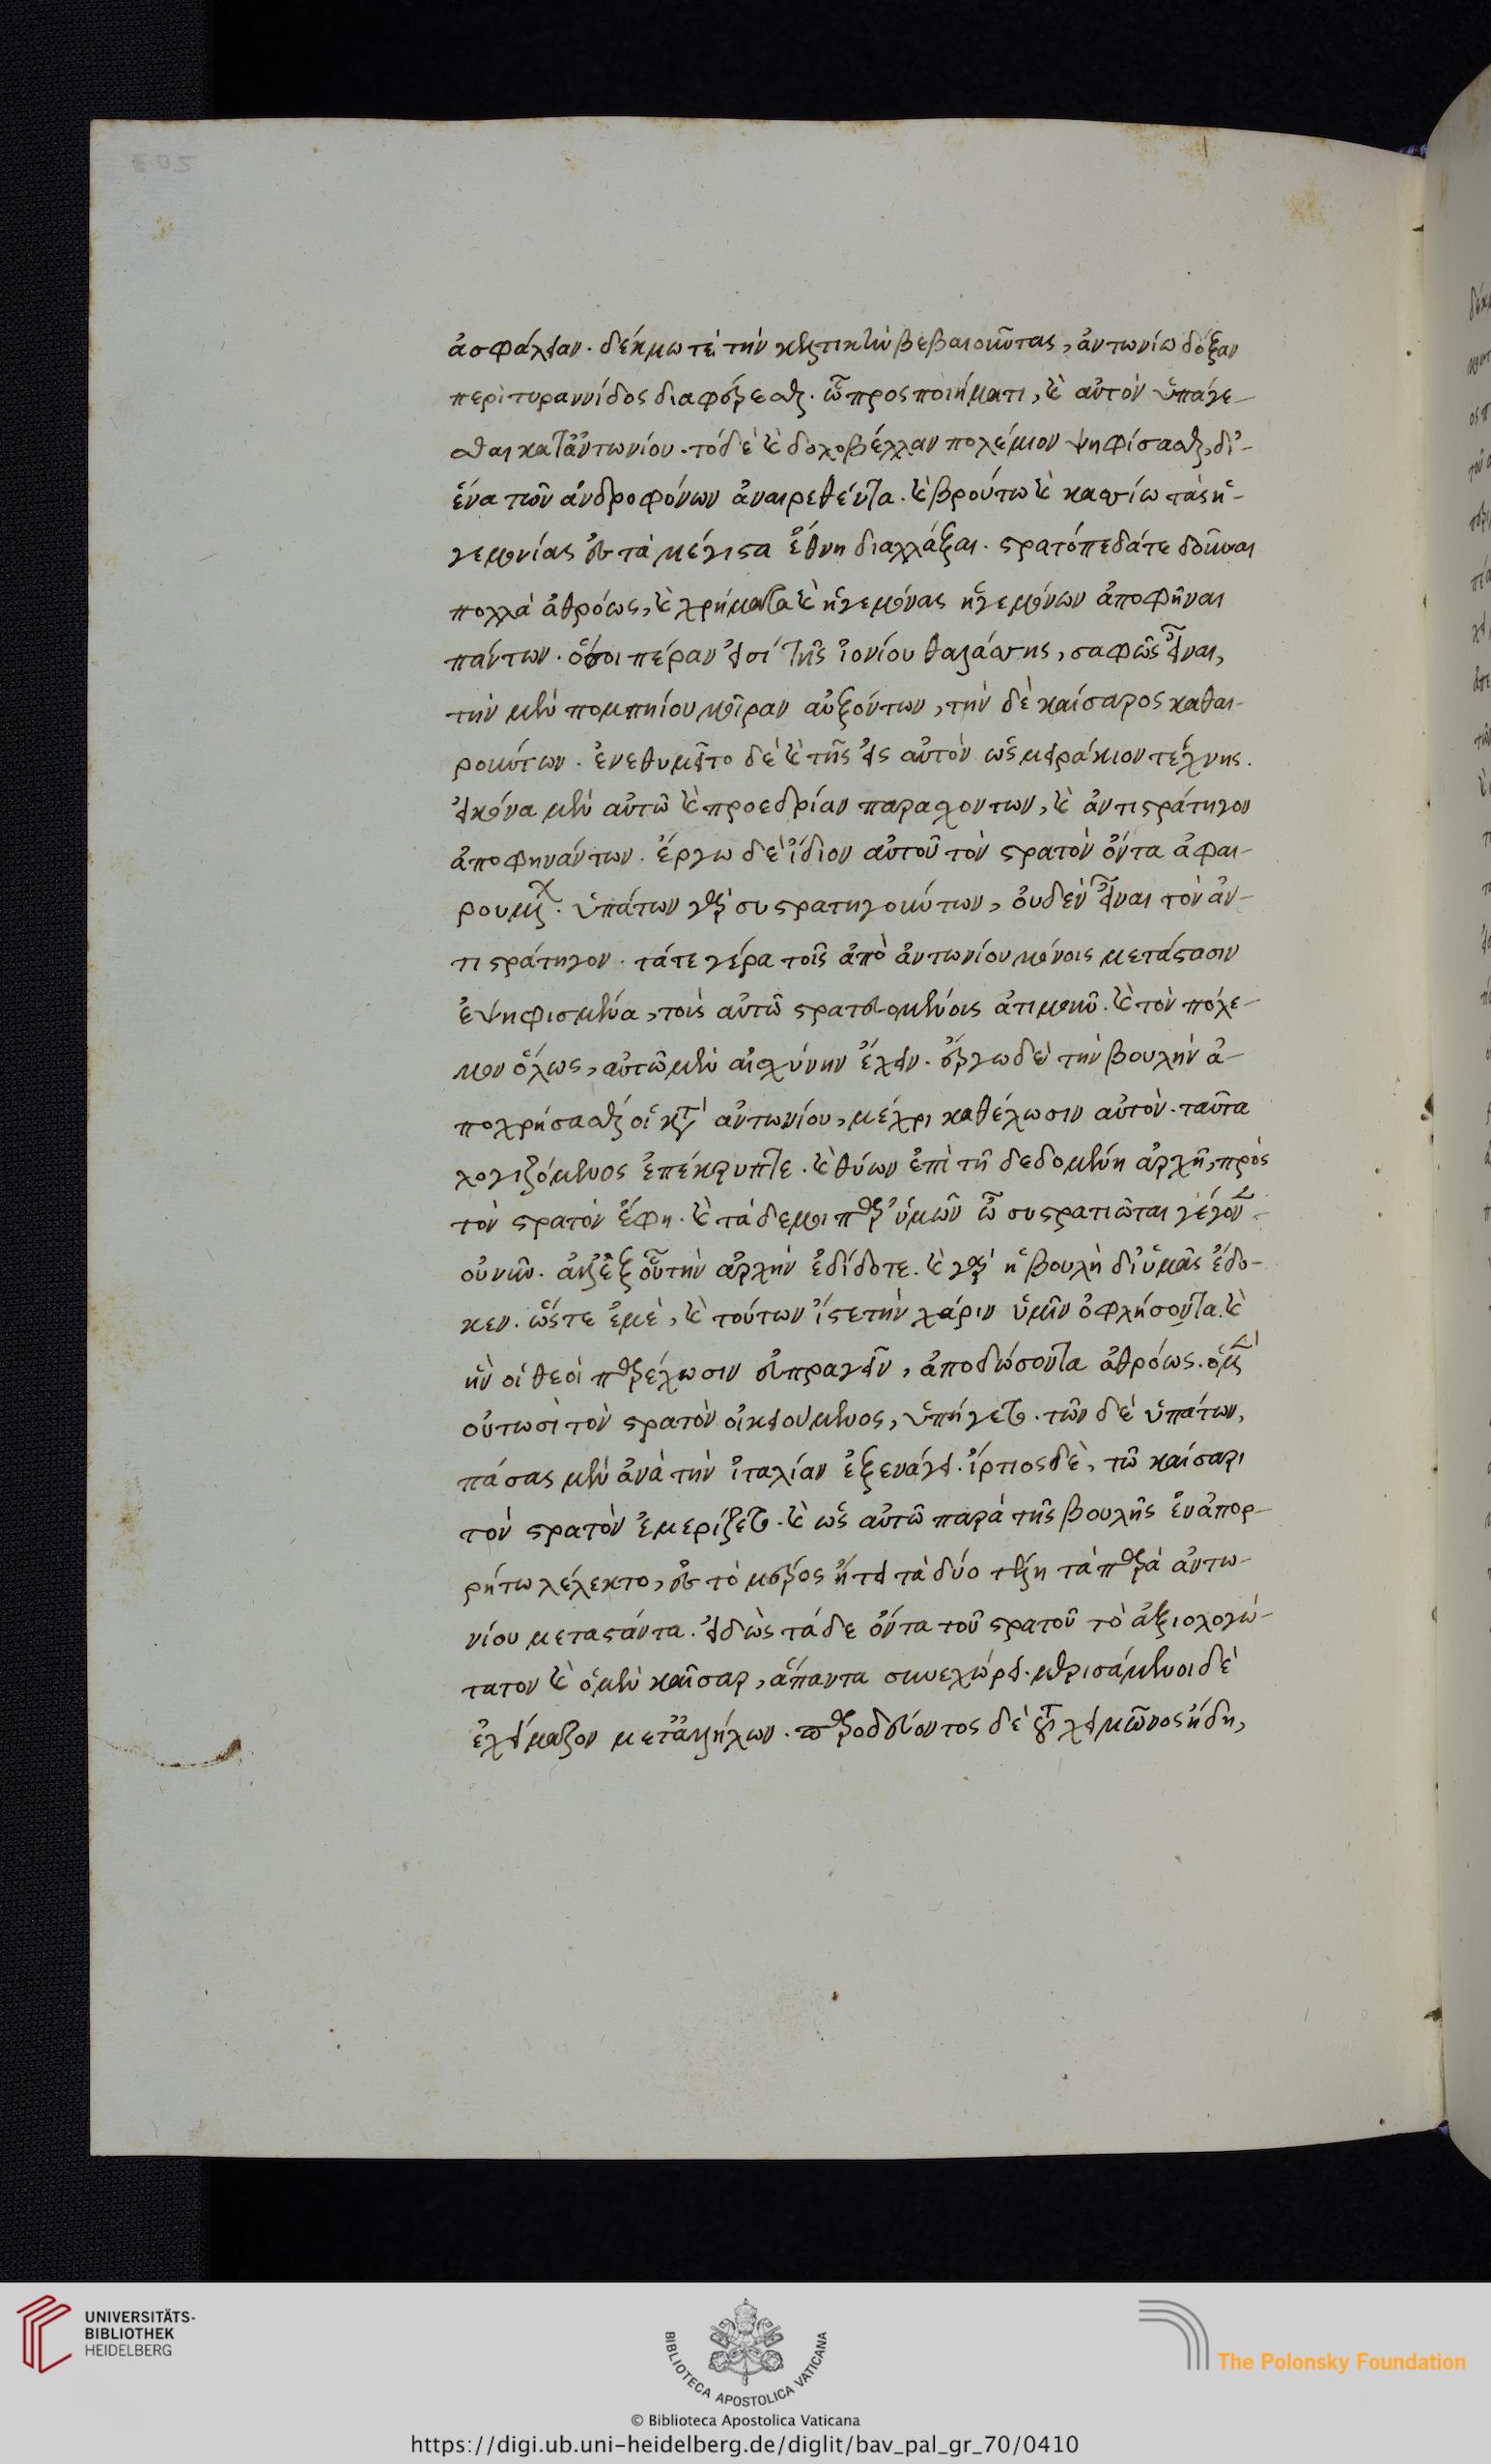 ἀσφάλειαν. δέκμω τὲ τὴν κελτικὴν βεβαιοῦντας, ἀντωνίω δόξαν
περὶ τυραννίδος διαφέρεσθαι. ᾧ προσποιήματι, καὶ αὐτὸν ὑπάγε-
σθαι κατ' ἀντωνίου. τὸ δὲ καὶ δολοβέλλαν πολέμιον ψηφίσασθαι, δι'
ἕνα τῶν ἀνδροφόνων ἀναιρεθέντα. καὶ βρούτω καὶ κασσίω τὰς ἡ-
γεμονίας ἐς τὰ μέγιστα ἔθνη διαλλάξαι. στρατόπεδά τε δοῦναι
πολλὰ ἀθρόως, καὶ χρήματα καὶ ἡγεμόνας ἡγεμόνων ἀποφῆναι
πάντων. ὅσοι πέραν εἰσὶ τῆς ἰονίου θαλάσσης, σαφῶς εἶναι,
τὴν μὲν πομπηίου μοῖραν αὐξόντων, τὴν δὲ καίσαρος καθαι-
ρούντων. ἐνεθυμεῖτο δὲ καὶ τῆς εἰς αὐτὸν ὡς μειράκιον τέχνης.
εἰκόνα μὲν αὐτῶ καὶ προεδρίαν παρασχόντων, καὶ ἀντιστράτηγον
ἀποφηνάντων. ἔργω δὲ ἴδιον αὐτοῦ τὸν στρατὸν ὄντα ἀφαι-
ρουμέν. ὑπάτων γὰρ συστρατηγούντων, οὐδὲν εἶναι τὸν ἀν-
τιστράτηγον. τά τε γέρα τοῖς ἀπὸ ἀντωνίου μόνοις μετάστασιν
ἐψηφισμένα, τοὶς αὐτῶ στρατευομένοις ἀτιμοῦν. καὶ τὸν πόλε-
μον ὅλως, αὐτῶ μὲν αἰσχύνην ἔχειν. ἔργω δὲ τὴν βουλὴν ἀ-
ποχρήσασθαί οἱ κατ' ἀντωνίου, μέχρι καθέλωσιν αὐτόν. ταῦτα
λογιζόμενος ἐπέκρυπτε. καὶ θύων ἐπὶ τῆ δεδομένη ἀρχῆ, πρὸς
τὸν στρατὸν ἔφη. καὶ τάδε μοι παρ' ὑμῶν ὦ συστρατιῶται γέγον-
οὐ νῦν. ἀλλ' ἐξ οὗ τὴν ἀρχὴν ἐδίδοτε. καὶ γὰρ ἡ βουλὴ δι' ὑμᾶς ἔδο-
κεν. ὥστε ἐμὲ, καὶ τούτων ἴστε τὴν χάριν ὑμῖν ὀφλήσοντα. καὶ
ἢν οἱ θεοὶ παρέχωσιν εὐπραγεῖν, ἀποδώσοντα ἀθρόως. ὁ μὲν
οὑτωσὶ τὸν στρατὸν οἰκειούμενος, ὑπήγετο. τῶν δὲ ὑπάτων,
πάσας μὲν ἀνὰ τὴν ἰταλίαν ἐξενάγει. ἵρτιος δὲ, τῶ καίσαρι
τὸν στρατὸν ἐμερίζετο. καὶ ὡς αὐτῶ παρὰ τῆς βουλῆς ἐν ἀπορ-
ρήτω λέλεκτο, ἐς τὸ μέρος ἤτει τὰ δύο τέλη τὰ παρὰ ἀντω-
νίου μεταστάντα. εἰδὼς τάδε ὄντα τοῦ στρατοῦ τὸ ἀξιολογώ-
τατον καὶ ὁ μὲν καῖσαρ, ἅπαντα συνεχώρει. μερισάμενοι δὲ
ἐχείμαζον μετ' ἀλλήλων. παροδεύοντος δὲ τοῦ χειμῶνος ἤδη,
UNIVERSITÄTS-
BIBLIOTHEK
HEIDELBERG
BIBLIOTECA APOSTOLICA VATICANA
The Polonsky Foundation
© Biblioteca Apostolica Vaticana
https://digi.ub.uni-heidelberg.de/diglit/bav_pal_gr_70/0410